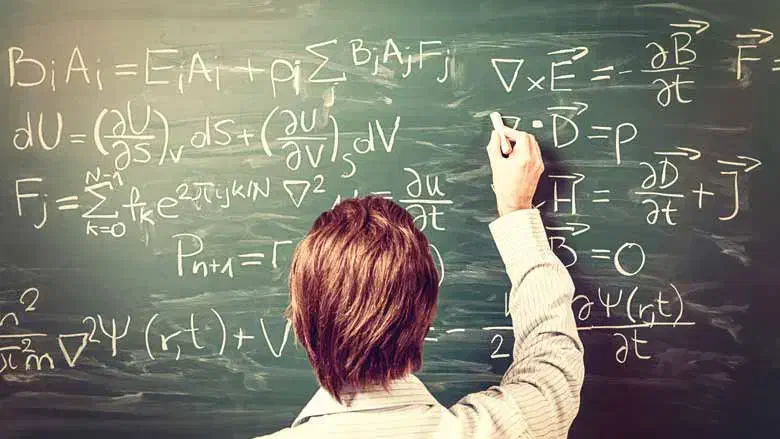 BᵢAᵢ = EᵢAᵢ + ρᵢ Σⱼ BⱼAⱼFⱼ
dU = (∂U/∂S)ᵥ dS + (∂U/∂V)ₛ dV
Fⱼ = Σ_{k=0}^{N-1} fₖ e^{2πijk/N}
∇² u = ∂u/∂t
Pₙ₊₁ = r
∇²Ψ(r,t) + V
∂Ψ(r,t)/∂t
∇×E⃗ = -∂B⃗/∂t
∇·D⃗ = ρ
H⃗ = ∂D⃗/∂t + J⃗
B⃗ = 0
F⃗ =